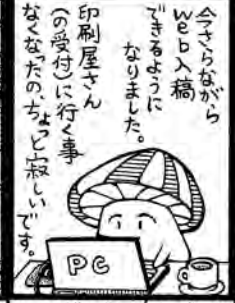 今さらながら
Web入稿
できるように
なりました。
印刷屋さん
(の受付)に行く事
なくなったの、ちょっと寂しいです。
PC